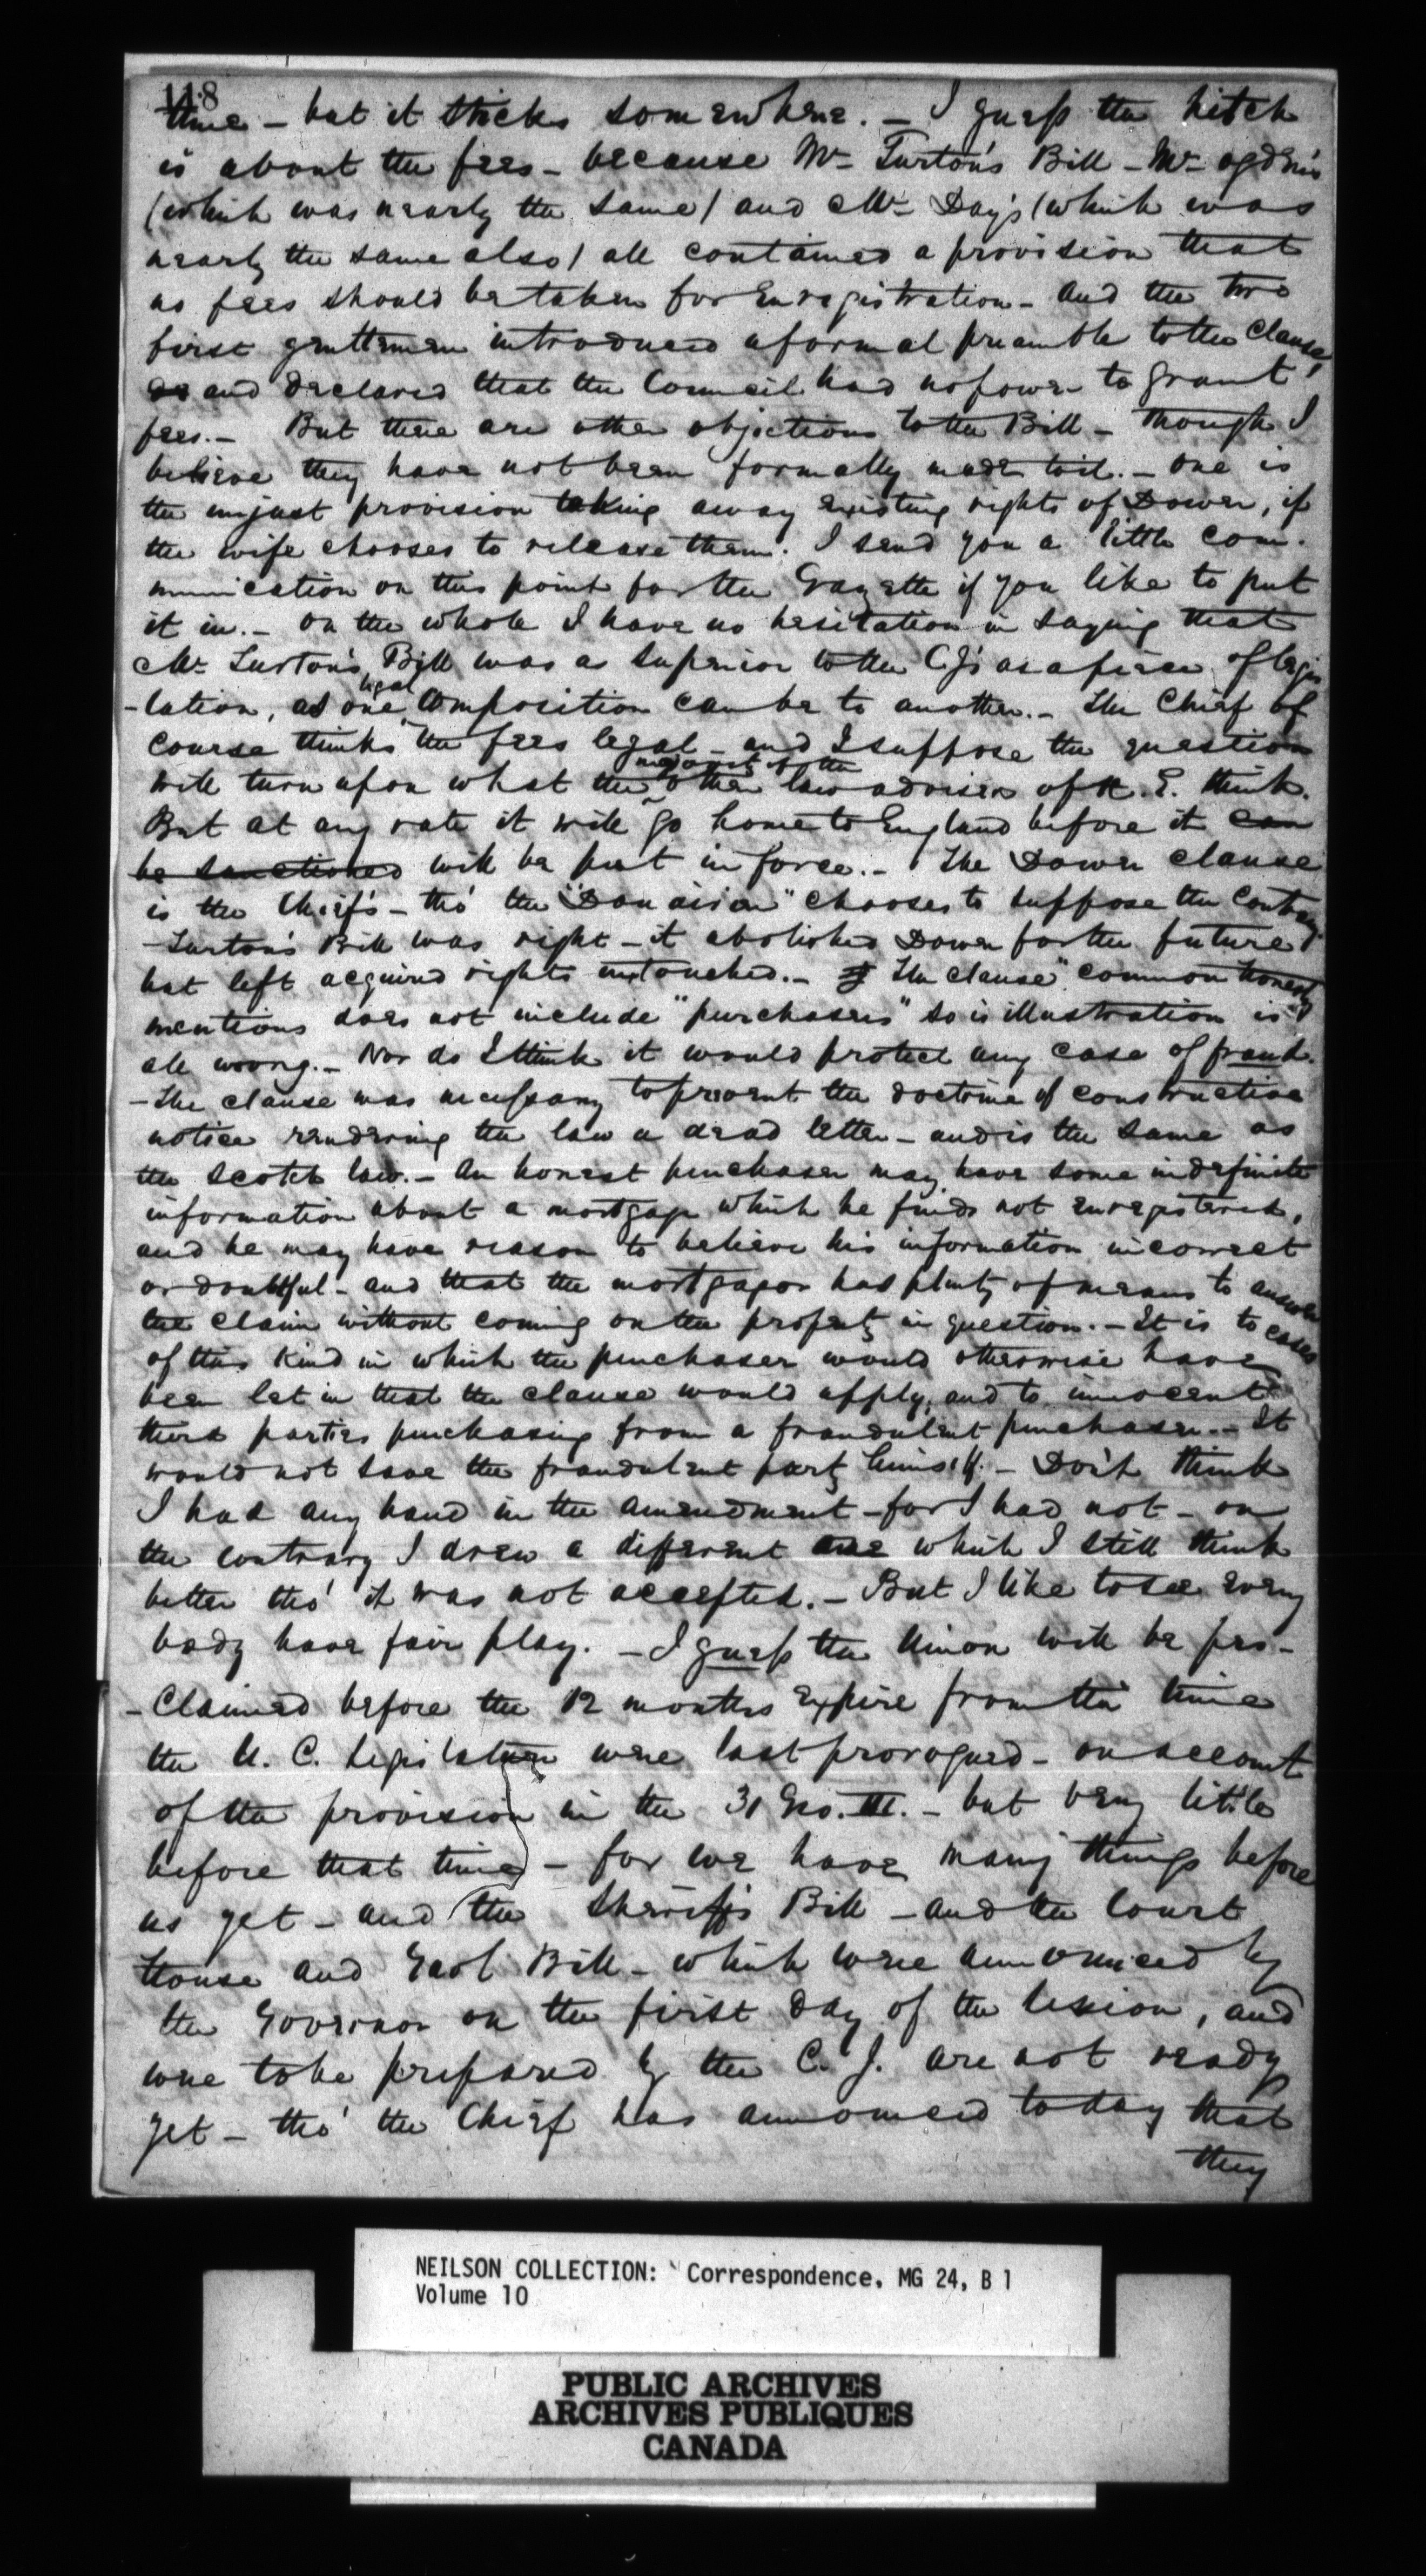 118
time - but it sticks somewhere. - I guess the hitch
is about the fees - because Mr Turton's Bill - Mr Ogden's
(which was nearly the same) and Mr Day's (which was
nearly the same also) all contained a provision that
no fees should be taken for Enregistration - and the two
first gentlemen introduced a formal preamble to the Clause,
and declared that the Council had no power to grant
fees. - But there are other objections to the Bill - though I
believe they have not been formally made to it. - One is
the unjust provision taking away existing rights of Dower, if
the wife chooses to release them. I send you a little com-
munication on this point for the Gazette if you like to put
it in. - On the whole I have no hesitation in saying that
Mr Turton's Bill was as superior to the CJ's as a piece of legis
-lation, as one legal Composition can be to another. - The Chief of
course thinks the fees legal - and I suppose the question
will turn upon what the majority of the other law advisers of H. E. think.
But at any rate it will go home to England before it can
be sanctioned will be put in force. - The Dower clause
is the Chief's - tho' the "Douairien" chooses to suppose the Contrary.
- Turton's Bill was right - it abolished Dower for the future
but left acquired rights untouched. - The clause "common honesty"
mentions does not include "purchasers" so is illustration is
all wrong. - Nor do I think it would protect any case of fraud.
- The clause was necessary to prevent the doctrine of constructive
notice rendering the law a dead letter - and is the same as
the Scotch law. - An honest purchaser may have some indefinite
information about a mortgage which he finds not enregistered,
and he may have reason to believe his information incorrect
or doubtful - and that the mortgagor has plenty of means to answer
the claim without coming on the property in question. - It is to cases
of this kind in which the purchaser would otherwise have
been let in that the clause would apply, and to innocent
third parties purchasing from a fraudulent purchaser. - It
would not save the fraudulent party himself. - Don't think
I had any hand in the amendment - for I had not - on
the contrary I drew a different one which I still think
better tho' it was not accepted. - But I like to see every
body have fair play. - I guess the Union will be pro-
- Claimed before the 12 months expire from the time
the U. C. Legislature were last prorogued - on account
of the provision in the 31 Geo. III. - but very little
before that time - for we have many things before
us yet - and the Sheriff's Bill - and the Court
House and Gaol Bill - which were announced by
the Governor on the first day of the session, and
were to be prepared by the C. J. are not ready
yet - tho' the Chief has announced today that
they
NEILSON COLLECTION: Correspondence, MG 24, B 1
Volume 10
PUBLIC ARCHIVES
ARCHIVES PUBLIQUES
CANADA